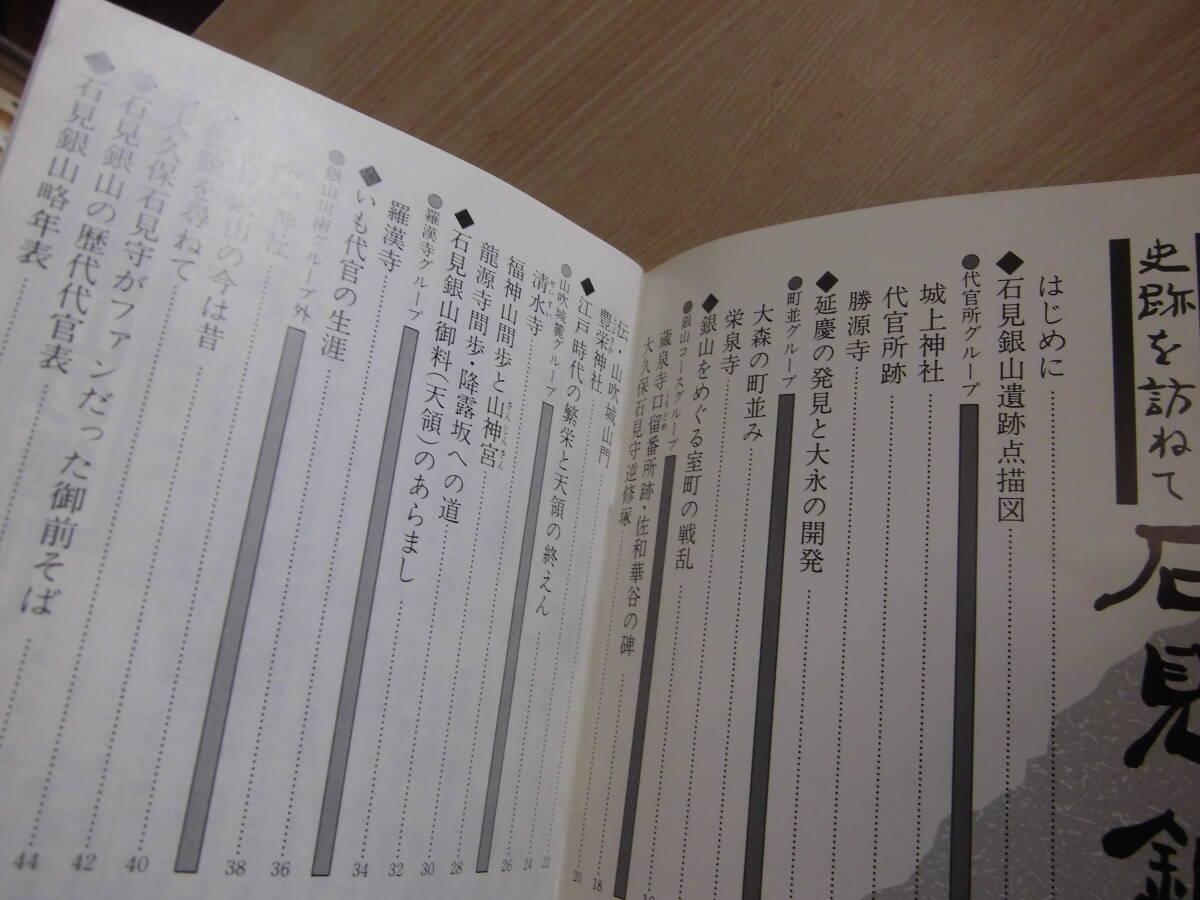 史跡を訪ねて
石見銀
はじめに
◆石見銀山遺跡点描図
●代官所グループ
城上神社
代官所跡
勝源寺
◆延慶の発見と大永の開発
●町並グループ
大森の町並み
栄泉寺
◆銀山をめぐる室町の戦乱
●銀山コースグループ
蔵泉寺口留番所跡・佐和華谷の碑
大久保石見守逆修塚
山吹城山門
18
豊栄神社
20
◆江戸時代の繁栄と天領の終えん
22
●山吹城麓グループ
清水寺
せいすい
24
福神山間歩と山神宮
さんじんさん
26
龍源寺間歩・降露坂への道
28
◆石見銀山御料(天領)のあらまし
30
●羅漢寺グループ
羅漢寺
32
◆いも代官の生涯
34
●銀山川南グループ外
神社
36
銀山の今は昔
38
を尋ねて
◆大久保石見守がファンだった御前そば
40
◆石見銀山の歴代代官表
42
◆石見銀山略年表
44